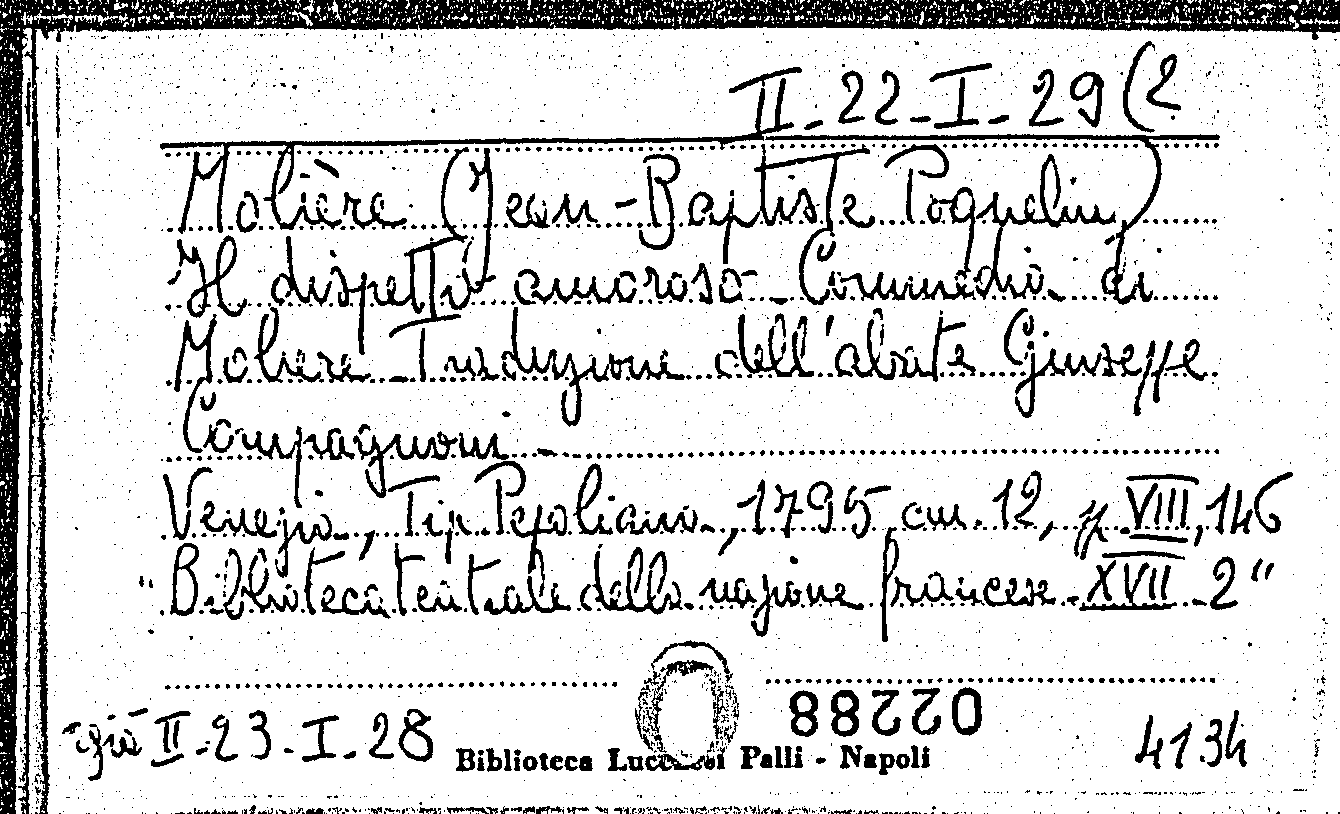 II-22-I-29(2
Molière (Jean-Baptiste Poquelin)
Il dispetto amoroso - Commedia di
Moliere - Traduzione dell'abate Giuseppe
Compagnoni -
Venezia, Tip. Pepoliana, 1795 cm. 12, pp. VIII, 146
"Biblioteca teatrale della nazione francese - XVII - 2"
02288
già II-23-I-28
Biblioteca Lucchesi Palli - Napoli
4134